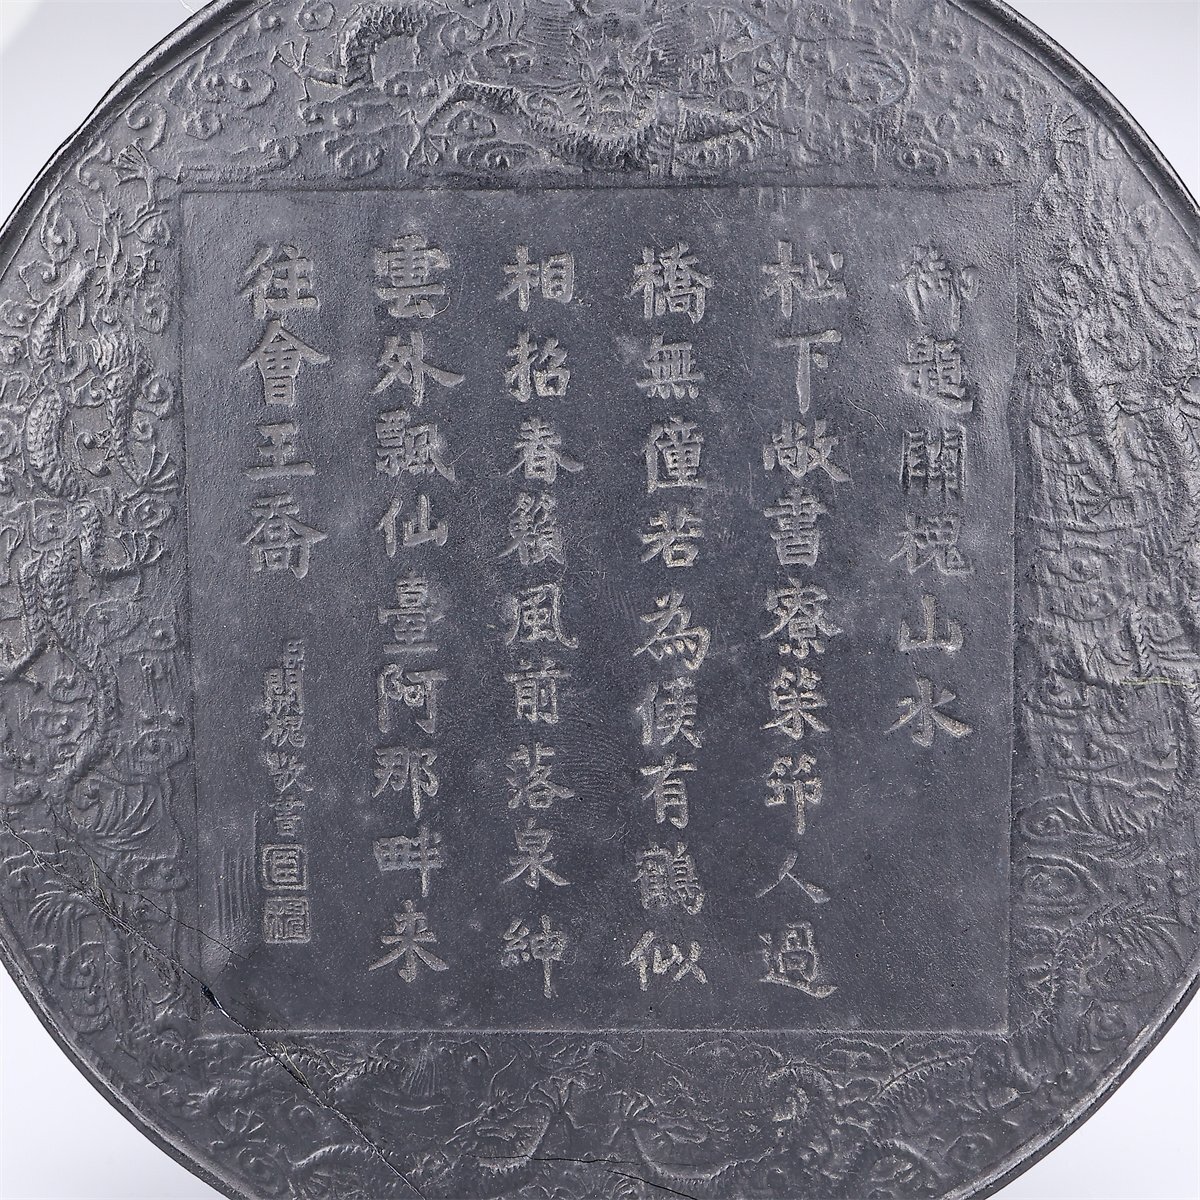 御題關槐山水
松下敞書寮策筇人過
橋無僮若為倩有鶴似
相招春籟風前落泉紳
雲外飄仙臺阿那畔来
往會王喬
臣關槐敬書
臣槐